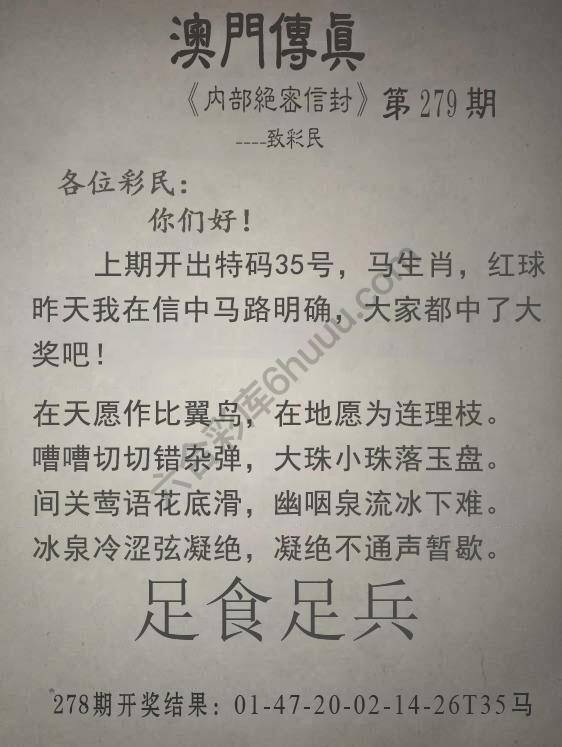 澳門傳眞
《内部絕密信封》第279期
----致彩民
各位彩民：
你们好！
上期开出特码35号，马生肖，红球
昨天我在信中马路明确，大家都中了大
奖吧！
在天愿作比翼鸟，在地愿为连理枝。
嘈嘈切切错杂弹，大珠小珠落玉盘。
间关莺语花底滑，幽咽泉流冰下难。
冰泉冷涩弦凝绝，凝绝不通声暂歇。
足食足兵
278期开奖结果：01-47-20-02-14-26T35马
六合彩库6huuu.com